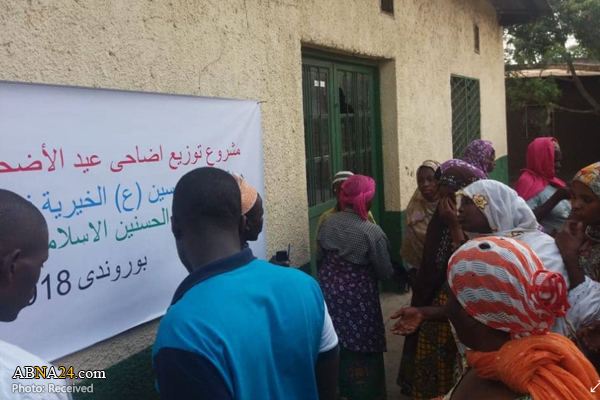 مشروع توزيع اضاحى عيد الأضح
سين (ع) الخيرية
الحسنين الاسلام
بوروندى 2018
ABNA24.com
Photo: Received